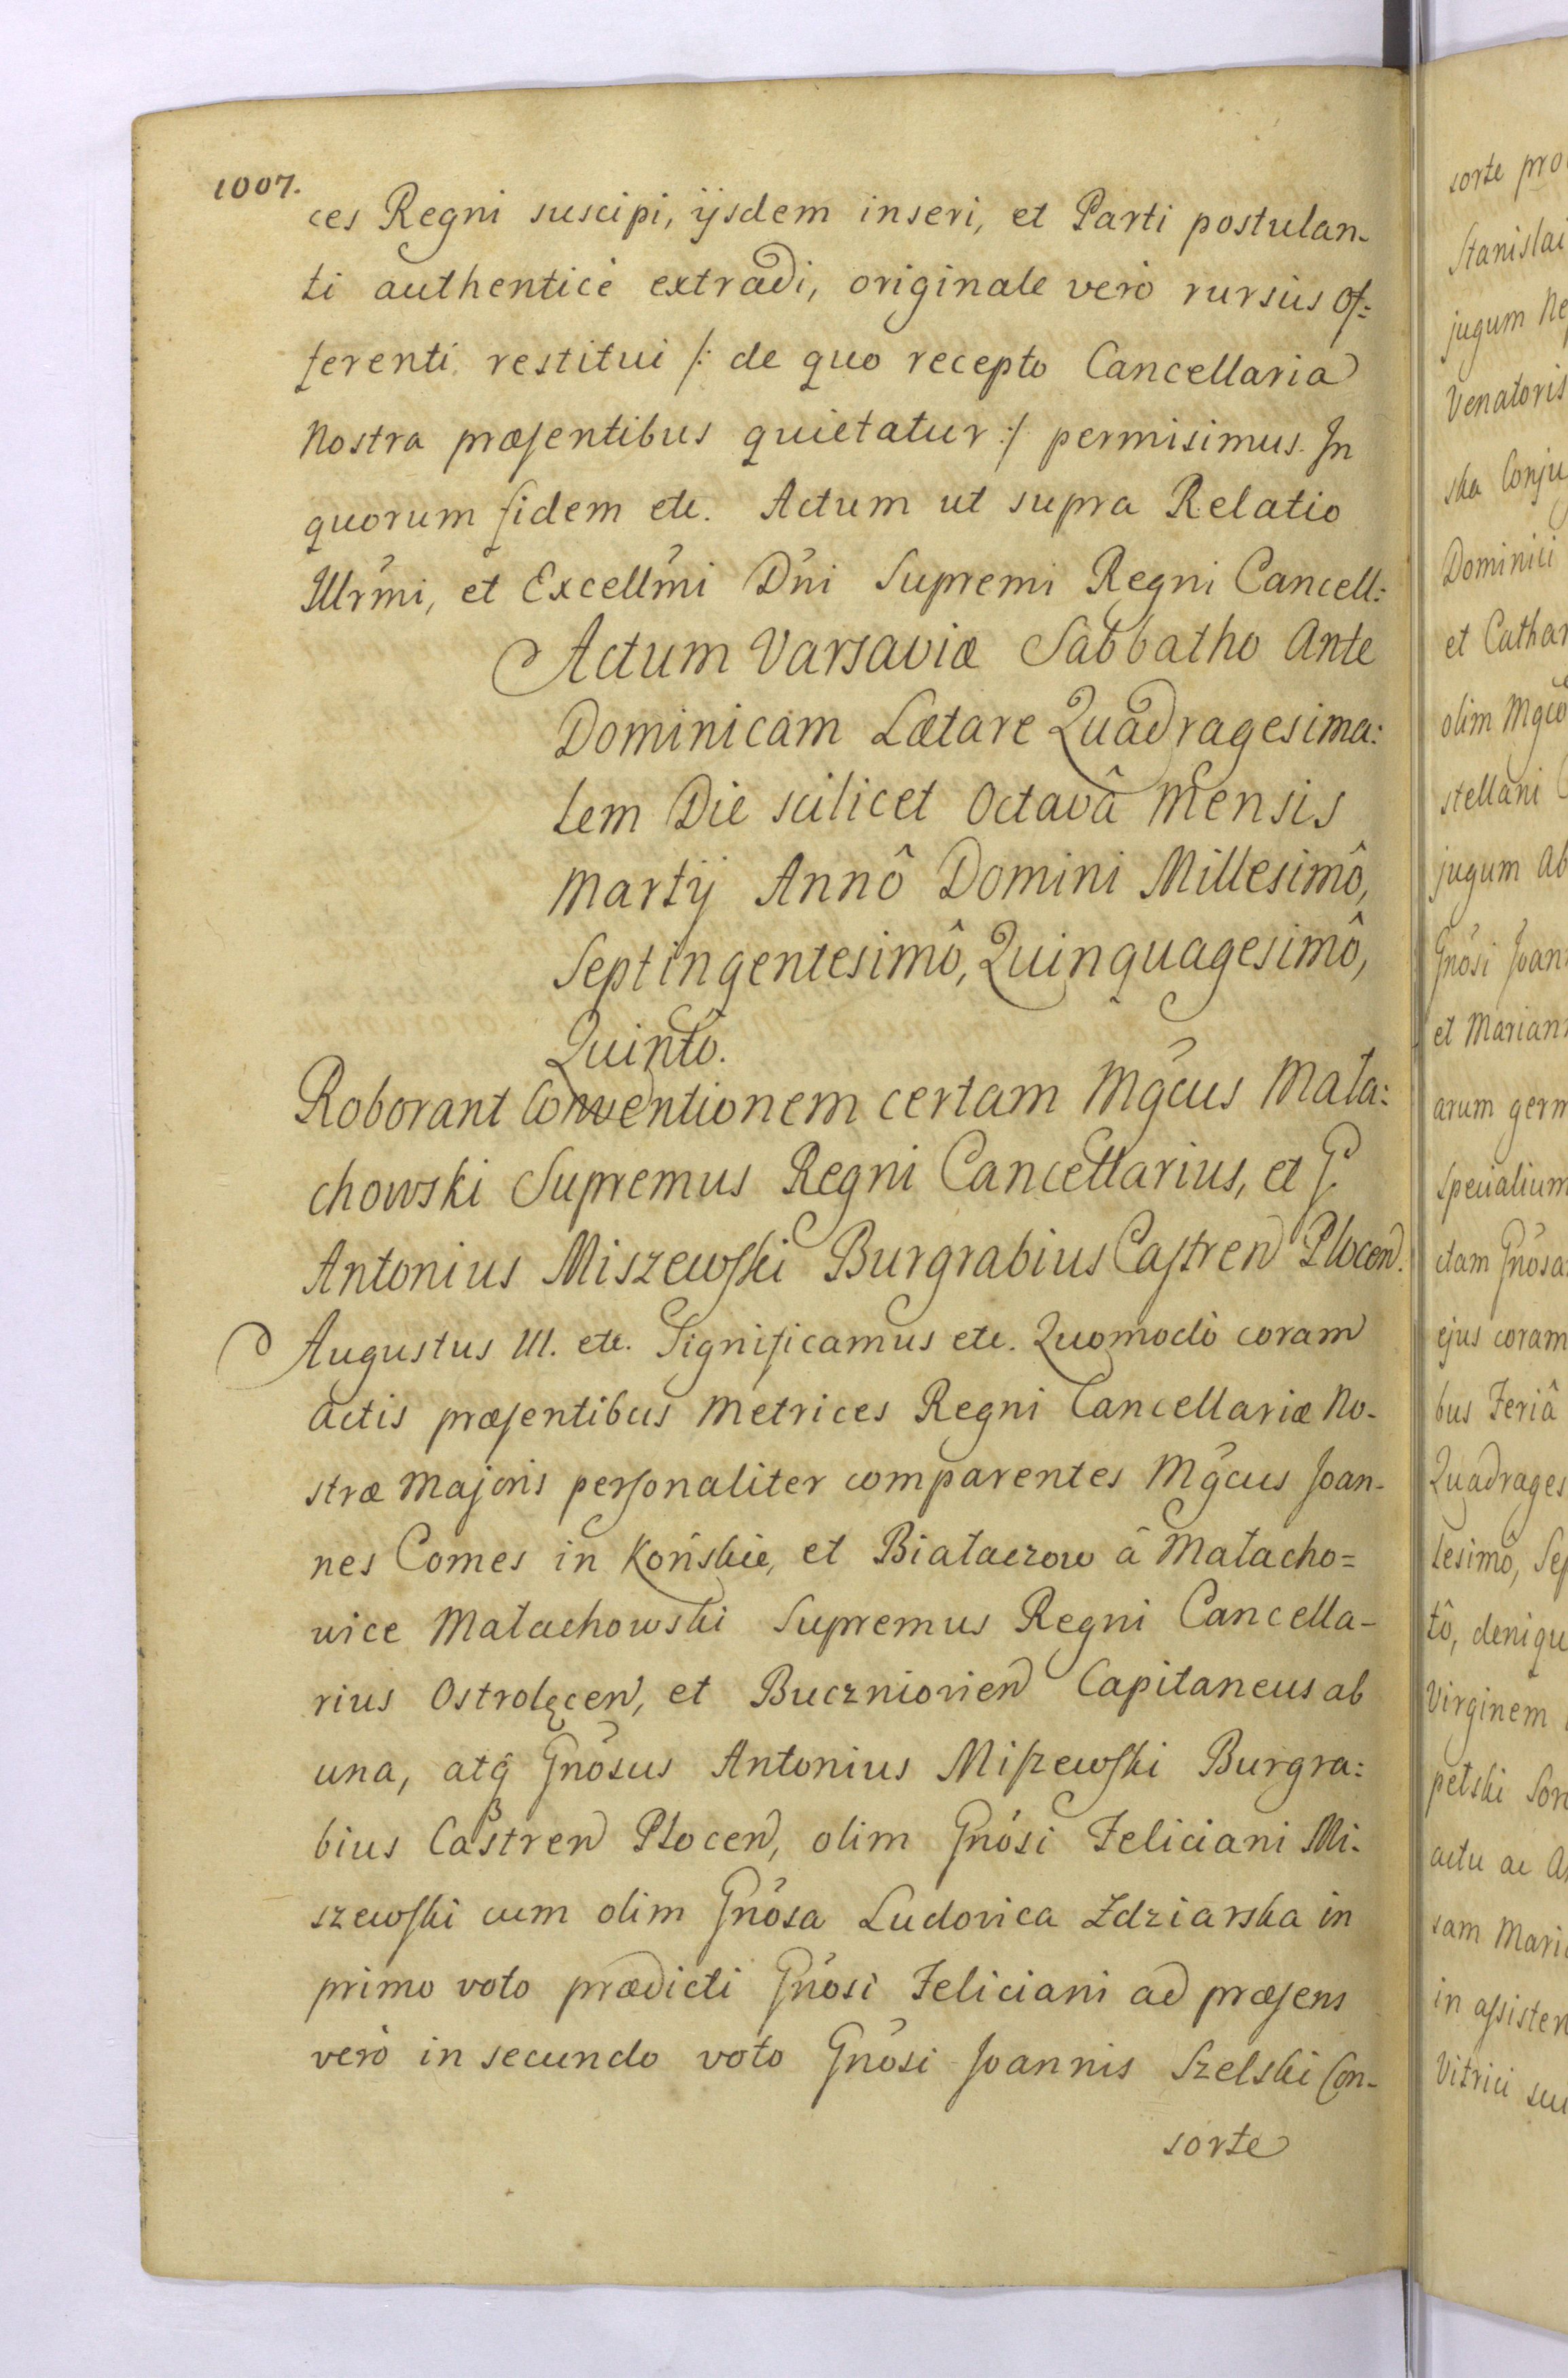 1007.
ces Regni suscipi, ijsdem inseri, et Parti postulan-
ti authenticè extradi, originale verò rursùs of:
ferenti restitui /: de quo recepto Cancellaria
Nostra præsentibus quietatur :/ permisimus. In
quorum fidem etc. Actum ut supra Relatio
Illrmi, et Excellmi Dni Supremi Regni Cancell:
Actum Varsaviæ Sabbatho Ante
Dominicam Lætare Quadragesima:
lem Die scilicet Octavâ Mensis
Martij Annô Domini Millesimô,
Septingentesimô, Quinquagesimô,
Quintô.
Roborant Conventionem certam Mgcus Mała:
chowski Supremus Regni Cancellarius, et G.
Antonius Miszewski Burgrabius Castren Plocen.
Augustus III. etc. Significamus etc. Quomodò coram
Actis præsentibus Metrices Regni Cancellariæ No-
stræ Majoris personaliter comparentes Mgcus Joan-
nes Comes in Końskie, et Białaczow â Małacho=
wice Małachowski Supremus Regni Cancella-
rius Ostrołęcen, et Buczniovien Capitaneus ab
una, atq Gnosus Antonius Miszewski Burgra:
bius Castren Plocen, olim Gnosi Feliciani Mi:
szewski cum olim Gnosa Ludovica Zdziarska in
primo voto prædicti Gnosi Feliciani ad præsens
verò in secundo voto Gnosi Joannis Szelski Con-
sorte
sorte pro
Stanislai
jugum Ne
Venatoris
ska Conju
Dominici
et Cathar
olim Mgco
stellani
jugum Ab
Gnosi Joan
et Mariann
arum germ
specialium
ctam Gnosa
ejus coram
bus Feriâ
Quadrages
lesimô, Sep
tô, deniqu
Virginem
petski Sor
actu ac A
sam Mari
in assisten
Vitrici sui